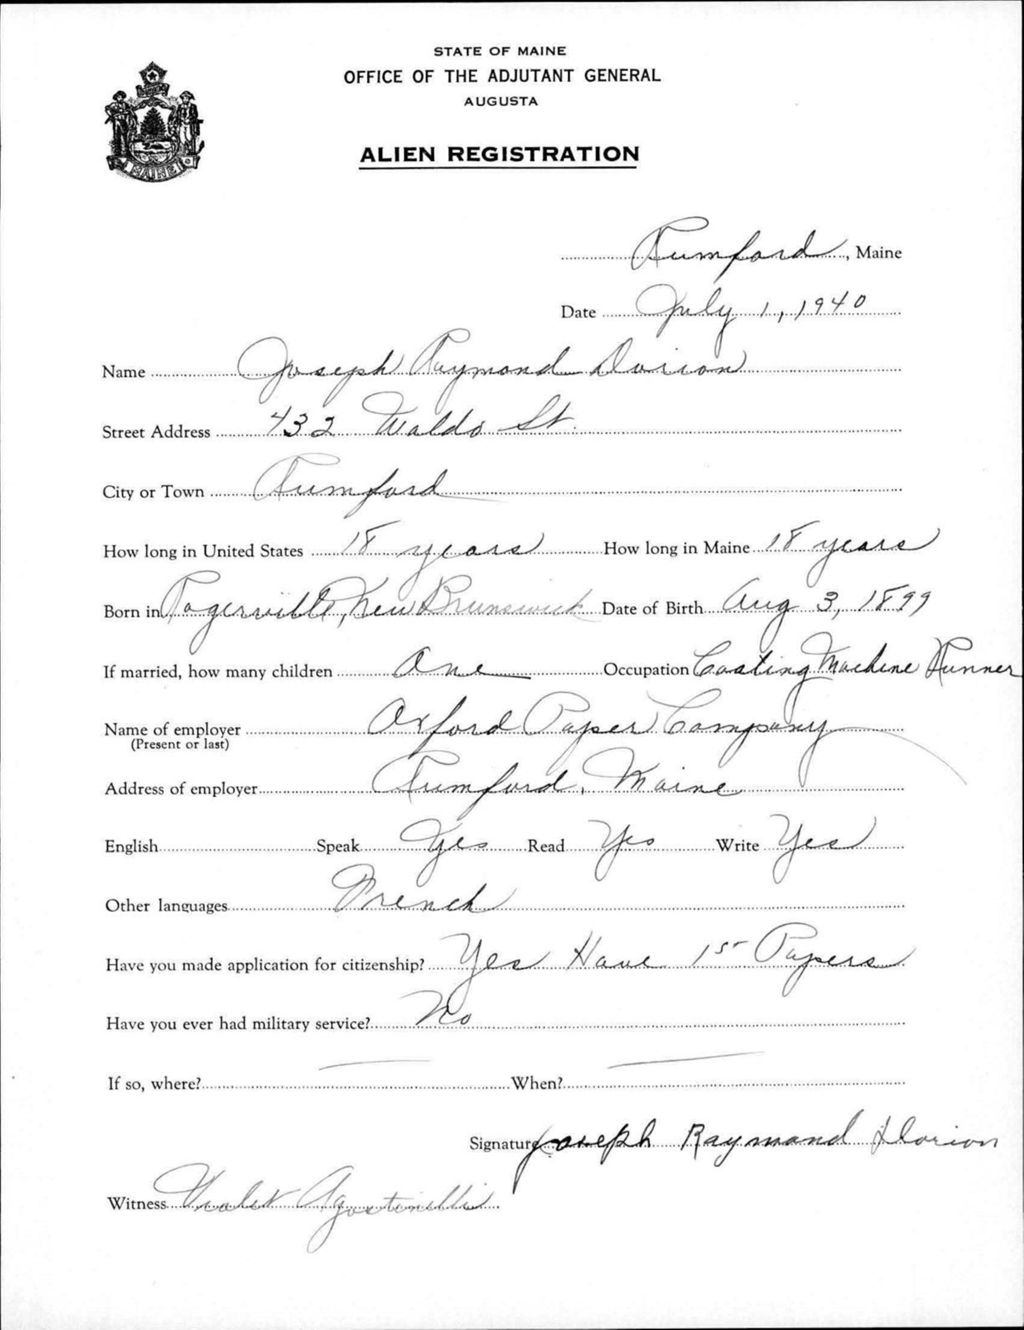 STATE OF MAINE
OFFICE OF THE ADJUTANT GENERAL
AUGUSTA
ALIEN REGISTRATION
MAINE
Rumford, Maine
Date July 1, 1940
Name Joseph Raymond Dorion
Street Address 432 Waldo St.
City or Town Rumford
How long in United States 18 years How long in Maine 18 years
Born in Rogerville, New Brunswick Date of Birth Aug 3, 1899
If married, how many children One Occupation Coating Machine Runner
Name of employer Oxford Paper Company
(Present or last)
Address of employer Rumford, Maine
English Speak Yes Read Yes Write Yes
Other languages French
Have you made application for citizenship? Yes Have 1st Papers
Have you ever had military service? No
If so, where? — When? —
Signature Joseph Raymond Dorion
Witness Violet Agostinelli